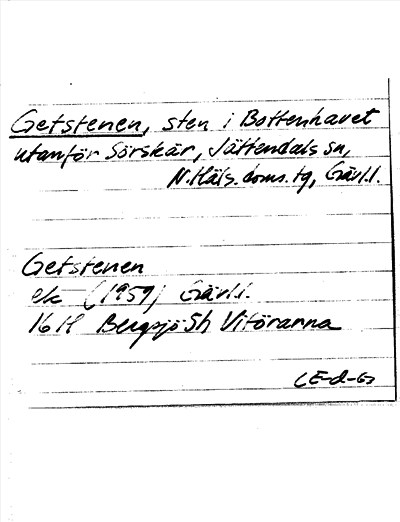 Getstenen, sten i Bottenhavet
utanför Sörskär, Jättendals sn,
N.Häls.doms.tg, Gävl.l.
Getstenen
ek (1959) Gävl.l.
16H Bergsjö Sh Vitörarna